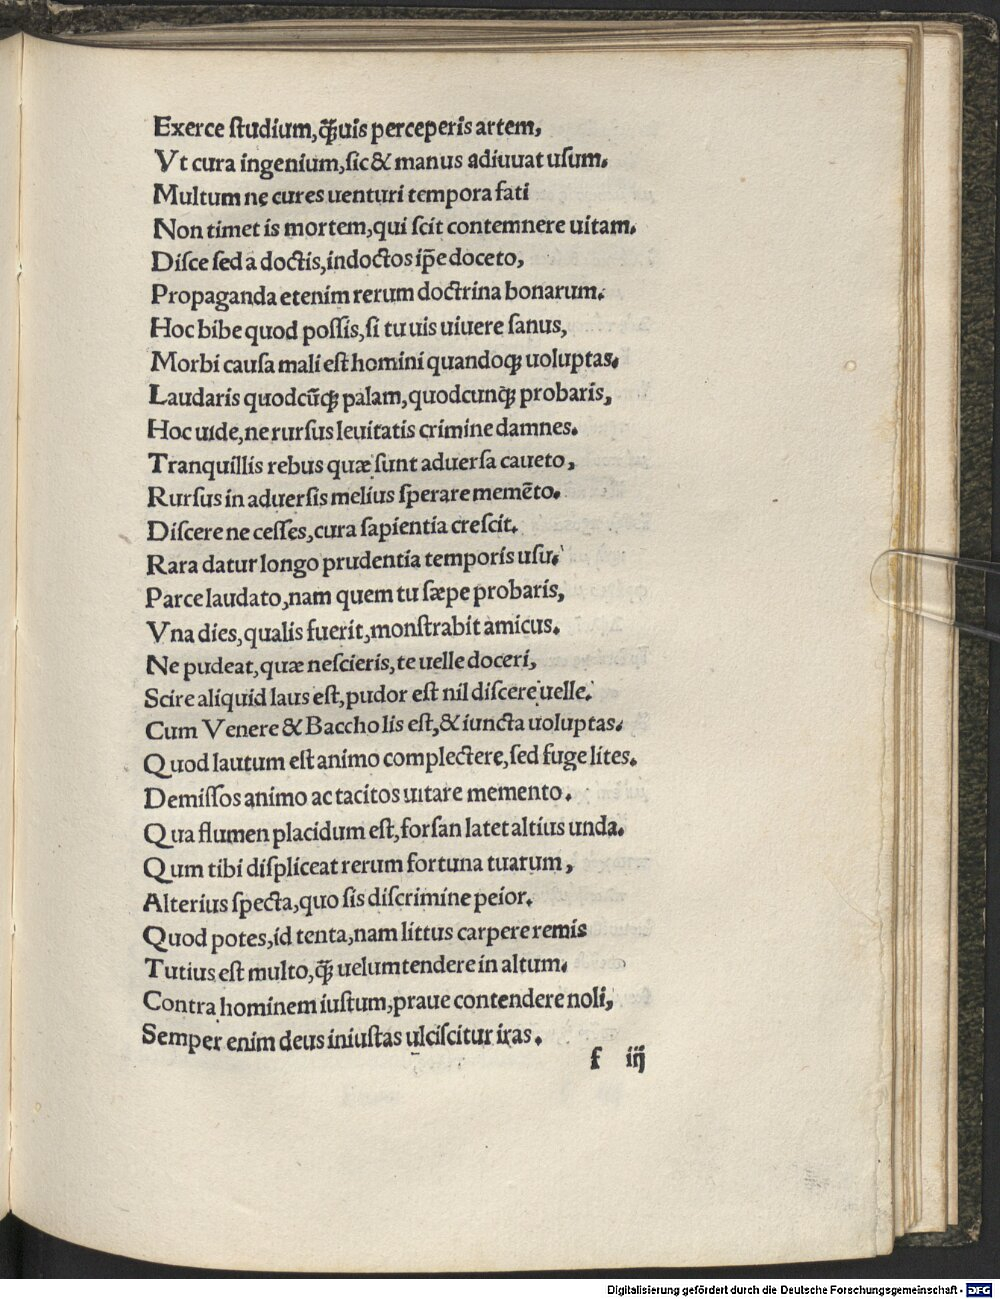 Exerce ſtudium,q̃uis perceperis artem,
Vt cura ingenium,ſic & manus adiuuat uſum.
Multum ne cures uenturi tempora fati
Non timet is mortem,qui ſcit contemnere uitam.
Diſce ſed a doctis,indoctos ip̃e doceto,
Propaganda etenim rerum doctrina bonarum.
Hoc bibe quod poſſis,ſi tu uis uiuere ſanus,
Morbi cauſa mali eſt homini quandoqꝫ uoluptas.
Laudaris quodcũqꝫ palam,quodcunqꝫ probaris,
Hoc uide,ne rurſus leuitatis crimine damnes.
Tranquillis rebus quæ ſunt aduerſa caueto,
Rurſus in aduerſis melius ſperare memẽto.
Diſcere ne ceſſes,cura ſapientia creſcit.
Rara datur longo prudentia temporis uſu.
Parce laudato,nam quem tu ſæpe probaris,
Vna dies,qualis fuerit,monſtrabit amicus.
Ne pudeat,quæ neſcieris,te uelle doceri,
Scire aliquid laus eſt,pudor eſt nil diſcere uelle.
Cum Venere & Baccho lis eſt,& iuncta uoluptas.
Quod lautum eſt animo complectere,ſed fuge lites.
Demiſſos animo ac tacitos uitare memento.
Qua flumen placidum eſt,forſan latet altius unda.
Qum tibi diſpliceat rerum fortuna tuarum,
Alterius ſpecta,quo ſis diſcrimine peior.
Quod potes,id tenta,nam littus carpere remis
Tutius eſt multo,q̃ uelum tendere in altum.
Contra hominem iuſtum,praue contendere noli,
Semper enim deus iniuſtas ulciſcitur iras.
f iij
Digitalisierung gefördert durch die Deutsche Forschungsgemeinschaft - DFG